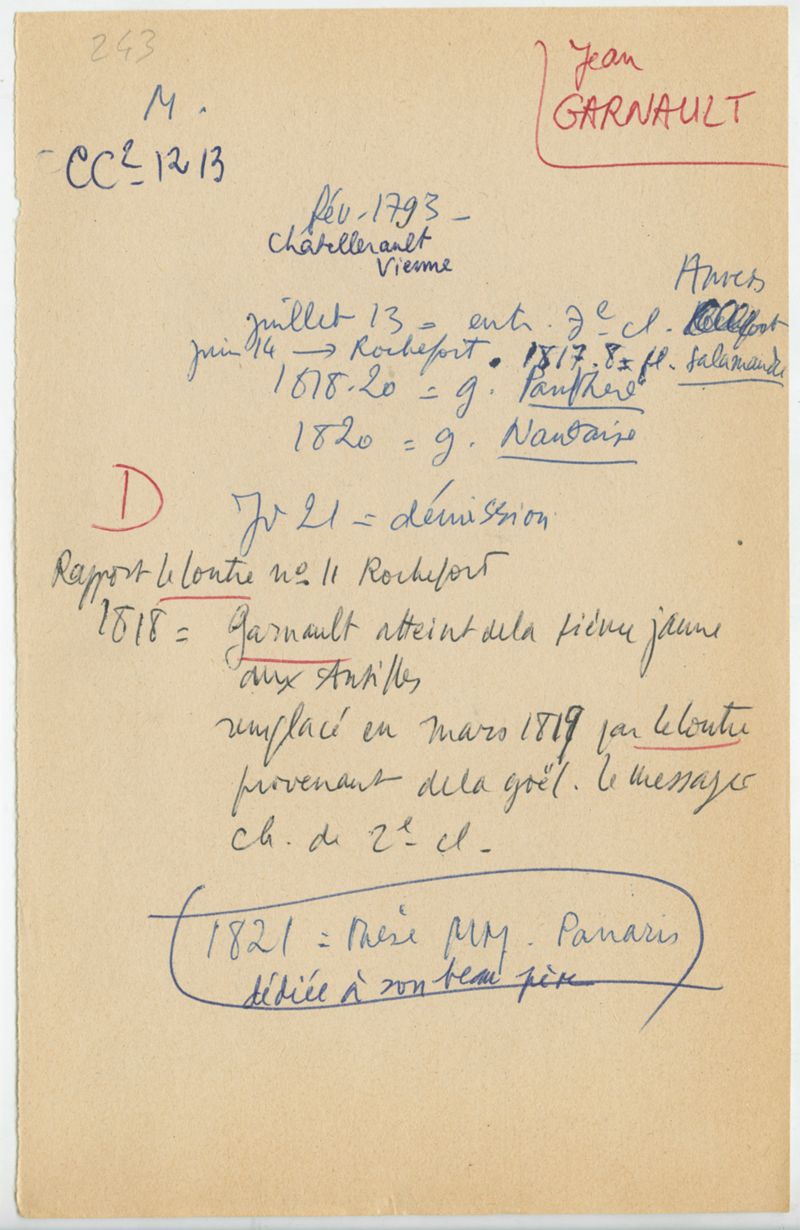 243
Jean
GARNAULT
M.
- CC2 - 12 13
fév. 1793 -
Châtellerault
Vienne
Anvers
juillet 13 = entr. 3e cl.
juin 14 → Rochefort. 1817.8 = fl. Salamandre
1818.20 = g. Panthère
1820 = g. Nantaise
D
Jv 21 = démission
Rapport Leloutre no 11 Rochefort
1818 = Garnault atteint de la fièvre jaune
aux Antilles
remplacé en mars 1819 par Leloutre
provenant de la goël. le messager
ch. de 2e cl -
1821 = thèse MM. Panaris
dédiée à son beau père